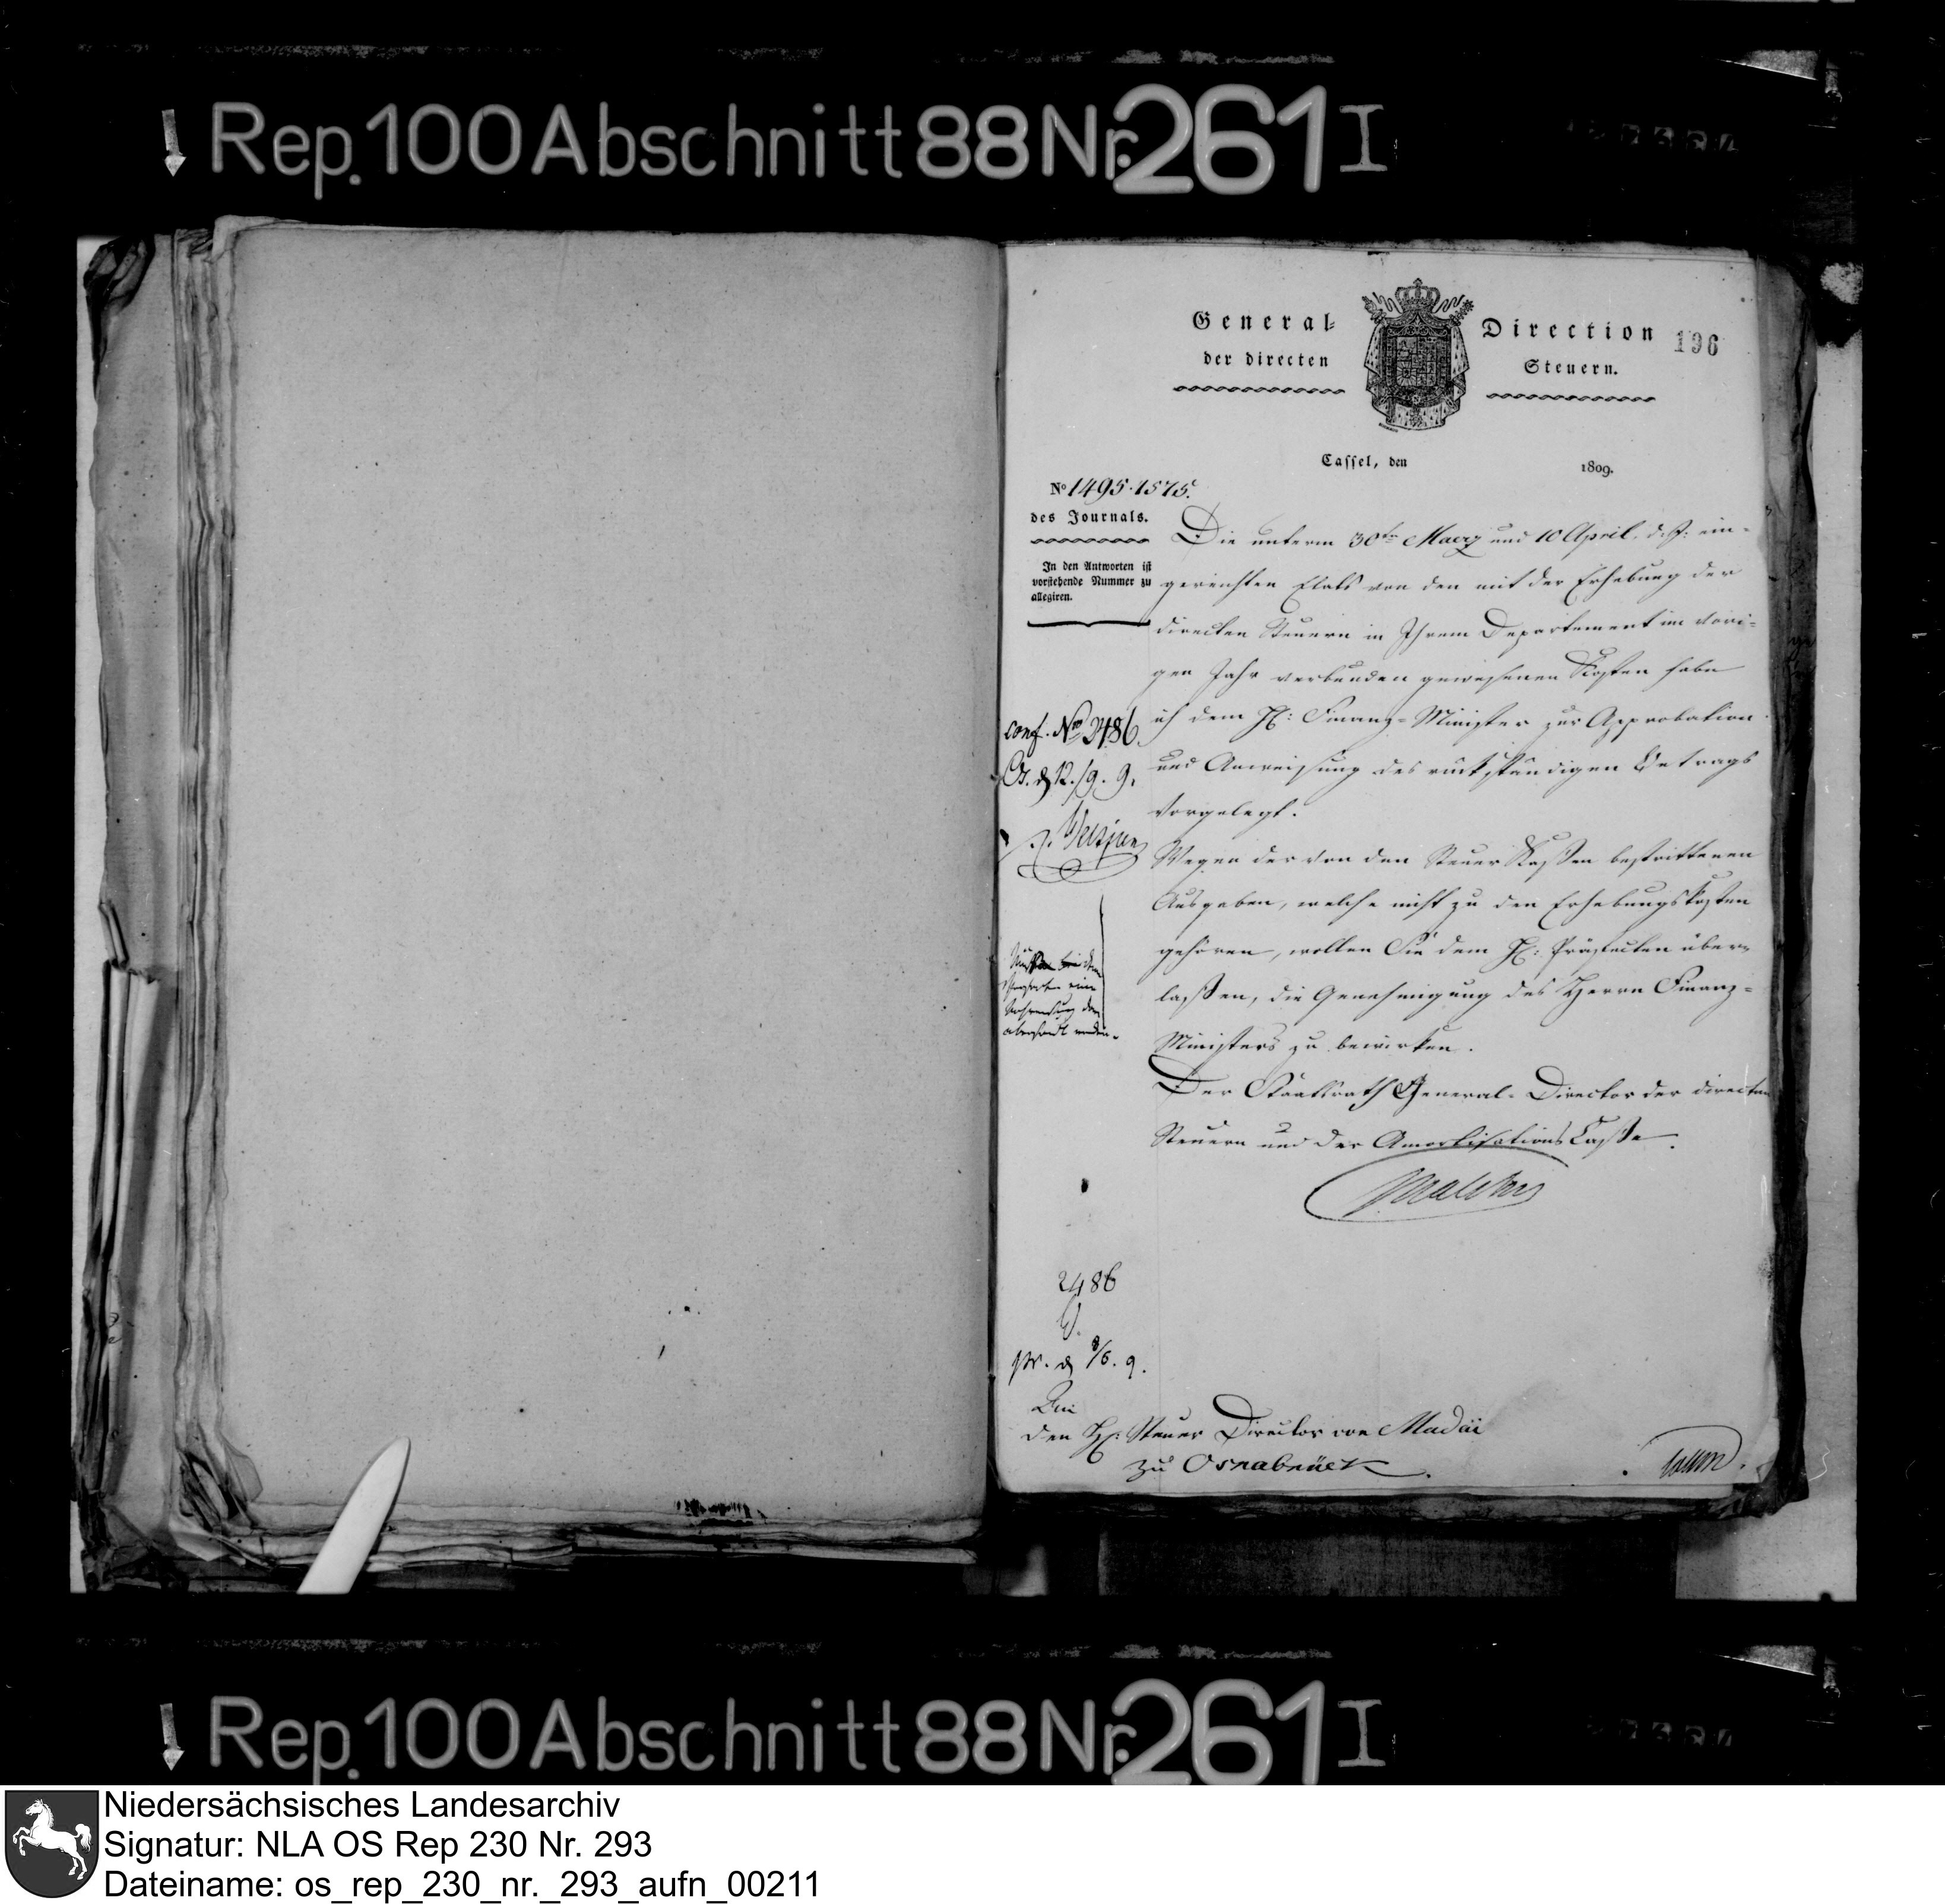 Rep. 100 Abschnitt 88 Nr. 261 I
General-Direction
der directen Steuern.
196
Cassel, den 1809.
No 1495.1575.
des Journals.
In den Antworten ist
vorstehende Nummer zu
allegiren.
Die unterm 30ten Maerz und 10 April. d. J: ein-
gereichten Etats von den mit der Erhebung der
directen Steuern in Ihrem Departement im vori-
gen Jahr verbunden gewesenen Kosten habe
ich dem H: Finanz-Minister zur Approbation
und Anweisung des rückständigen Betrags
vorgelegt.
Wegen der von den Steuer Kassen bestrittenen
Ausgaben, welche nicht zu den Erhebungskosten
gehören, wollen Sie dem H: Präfecten über-
lassen, die Genehmigung des Herrn Finanz-
Ministers zu bewirken.
Der Staatsrath General-Director der directen
Steuern und der Amortisations Casse.
Malchus
conf. No 2486
O. d 12./9. 9.
2486
pr. d 8/6. 9.
An
den H: Steuer Director von Madai
zu Osnabrück.
Rep. 100 Abschnitt 88 Nr. 261 I
Niedersächsisches Landesarchiv
Signatur: NLA OS Rep 230 Nr. 293
Dateiname: os_rep_230_nr._293_aufn_00211